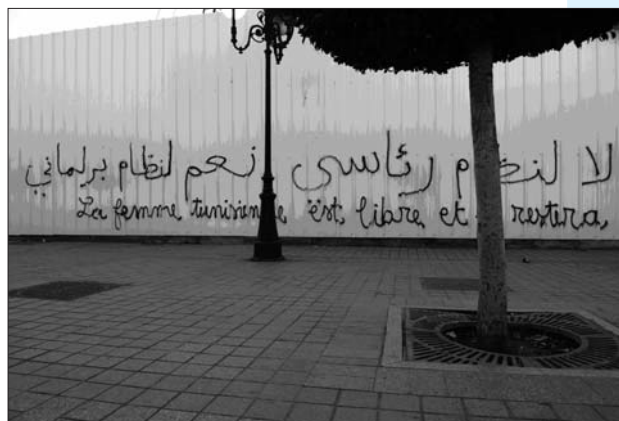 لا لنظام رئاسي نعم لنظام برلماني
La femme tunisienne est libre et restira